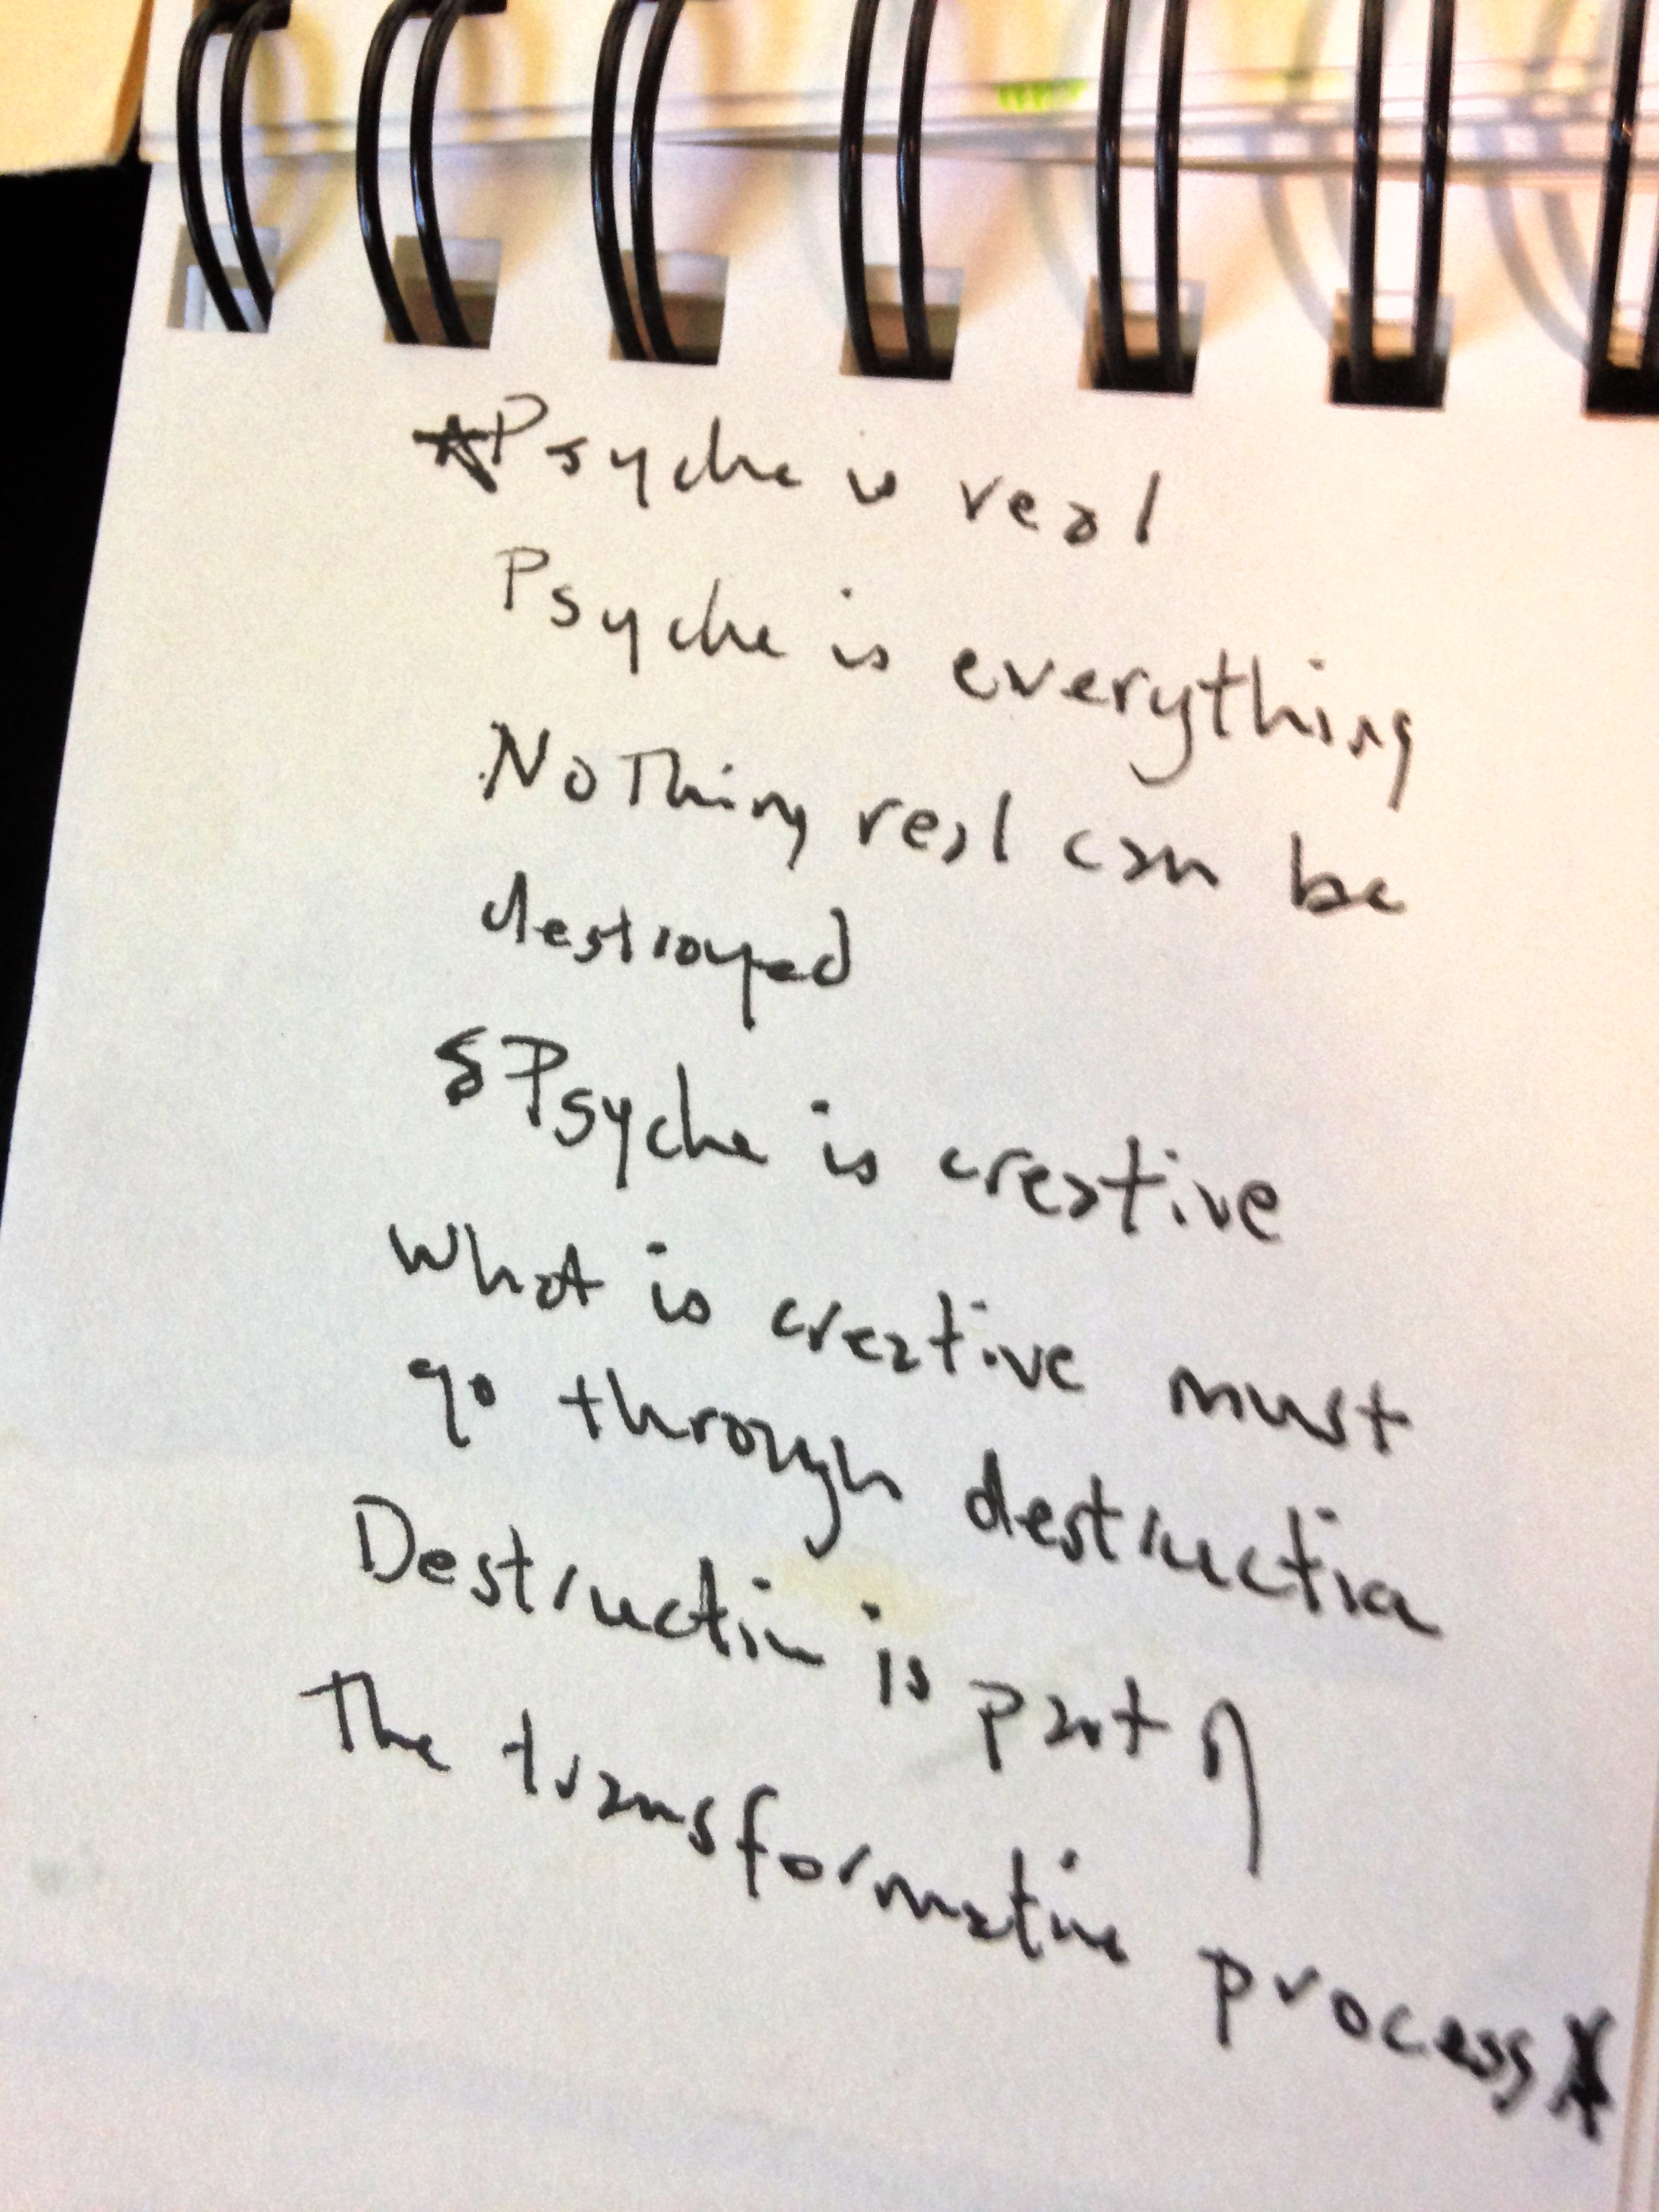 ☆Psyche is real
Psyche is everything
Nothing real can be
destroyed
§Psyche is creative
What is creative must
go through destruction
Destruction is part of
The transformative process☆